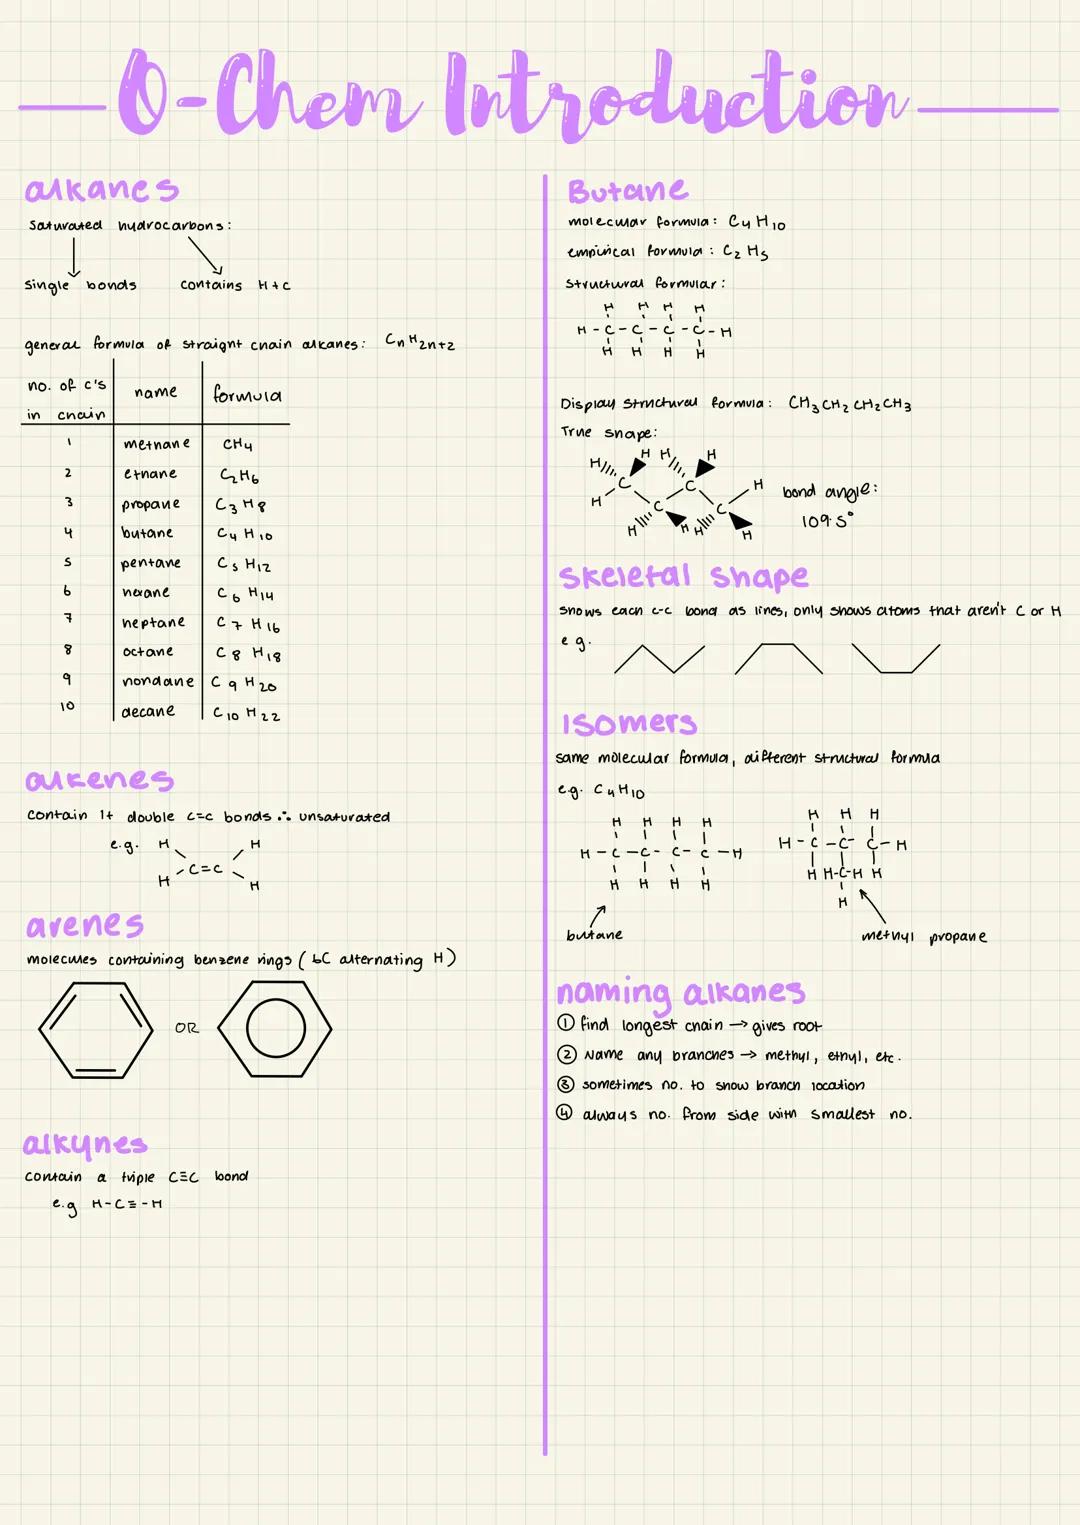 O-Chem Introduction
alkanes
Saturated hydrocarbons:
single bonds contains H+C
general formula of straight chain alkanes: CnH2n+2
no. of C's in chain name formula
1 methane CH4
2 ethane C2H6
3 propane C3H8
4 butane C4H10
5 pentane C5H12
6 hexane C6H14
7 heptane C7H16
8 octane C8H18
9 nondane C9H20
10 decane C10H22
alkenes
contain 1+ double C=C bonds ∴ unsaturated
e.g. H H
C=C
H H
arenes
molecules containing benzene rings (6C alternating H)
OR
alkynes
contain a triple C≡C bond
e.g H-C≡-H
Butane
molecular formula: C4H10
empirical formula: C2H5
structural formular:
H H H H
H-C-C-C-C-H
H H H H
Display structural formula: CH3CH2CH2CH3
True shape:
H H H H
C C H
H C C
H H H H
bond angle:
109.5°
skeletal shape
shows each c-c bond as lines, only shows atoms that aren't C or H
e g.
isomers
same molecular formula, different structural formula
e.g. C4H10
H H H H
H-C-C-C-C-H
H H H H
butane
H H H
H-C-C-C-H
H H-C-H H
H
methyl propane
naming alkanes
① find longest chain → gives root
② Name any branches → methyl, ethyl, etc.
③ sometimes no. to show branch location
④ always no. from side with smallest no.